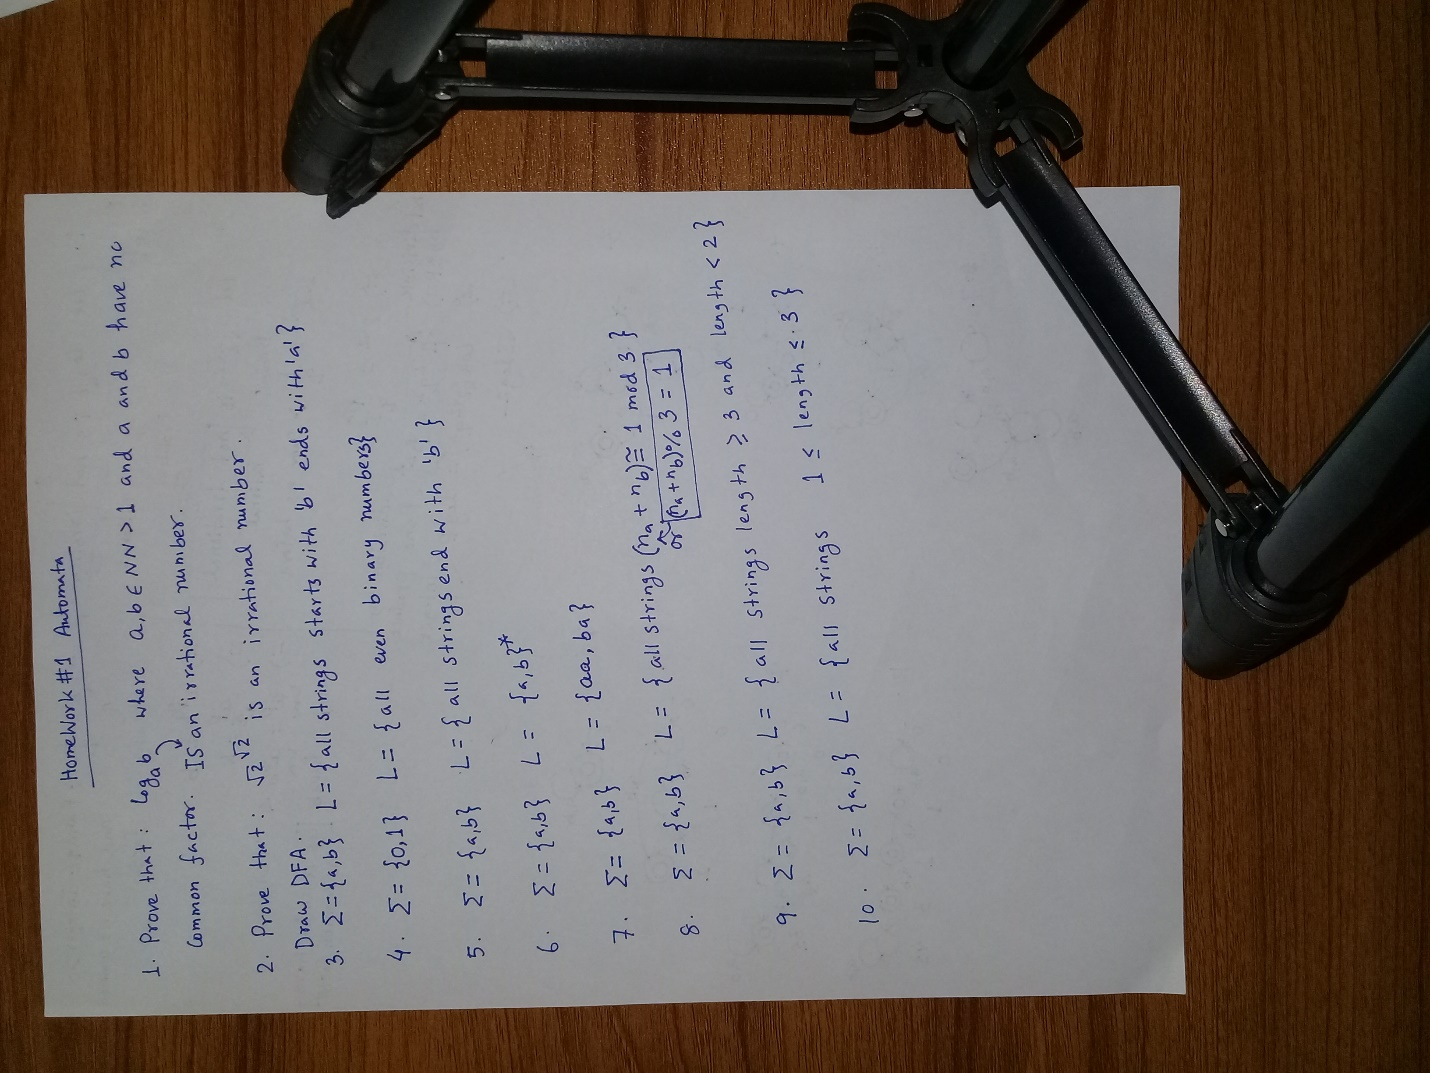 HomeWork #1 Automata
1. Prove that: log_a b where a,b ∈ NN > 1 and a and b have no
Common factor. IS an irrational number.
2. Prove that: √2^√2 is an irrational number.
Draw DFA.
3. Σ={a,b} L={all strings starts with 'b' ends with 'a'}
4. Σ={0,1} L={all even binary numbers}
5. Σ={a,b} L={all strings end with 'b'}
6. Σ={a,b} L={a,b}*
7. Σ={a,b} L={aa,ba}
8. Σ={a,b} L={all strings (na+nb)≅ 1 mod 3}
or (na+nb)%3=1
9. Σ={a,b} L={all strings length ≥ 3 and length < 2}
10. Σ={a,b} L={all strings 1 ≤ length ≤ 3}